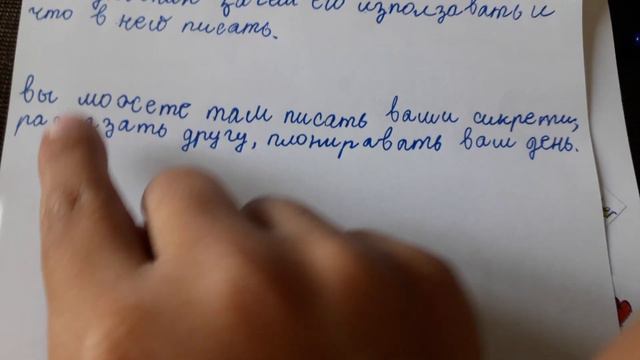 зачем его използвать и
что в него писать.
вы можете там писать ваши сикрети,
другу, плонировать ваш день.